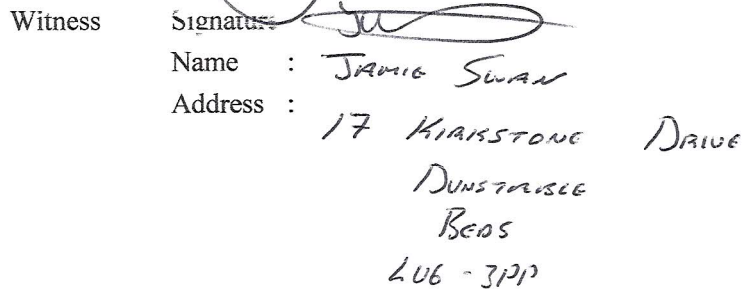 Witness Signature
Name : JAMIE SWAN
Address :
17 KIRKSTONE DRIVE
DUNSTABLE
BEDS
LU6 - 3PP